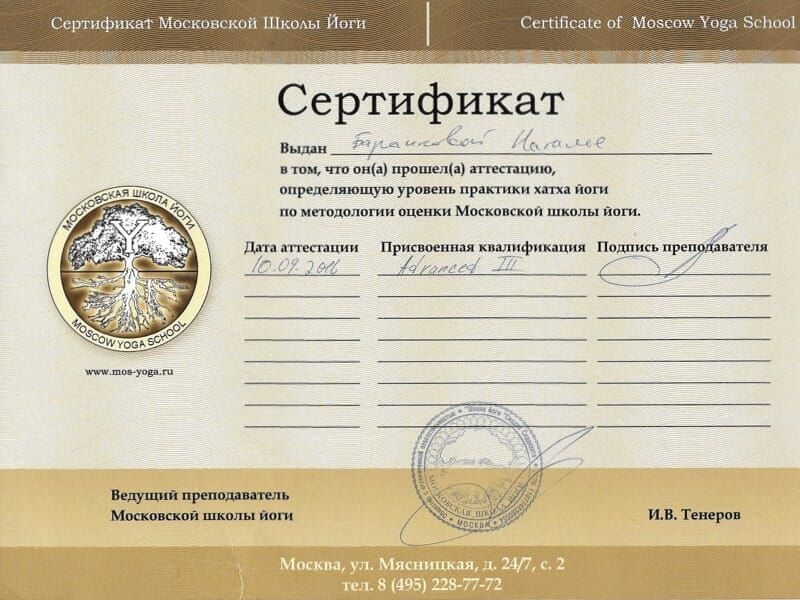 Сертификат Московской Школы Йоги
Certificate of Moscow Yoga School
Сертификат
Выдан Наталье
в том, что он(а) прошел(а) аттестацию,
определяющую уровень практики хатха йоги
по методологии оценки Московской школы йоги.
МОСКОВСКАЯ ШКОЛА ЙОГИ
MOSCOW YOGA SCHOOL
www.mos-yoga.ru
Дата аттестации Присвоенная квалификация Подпись преподавателя
10.09.2016 Advanced III
МОСКОВСКАЯ ШКОЛА ЙОГИ
МОСКВА
Ведущий преподаватель
Московской школы йоги
И.В. Тенеров
Москва, ул. Мясницкая, д. 24/7, с. 2
тел. 8 (495) 228-77-72